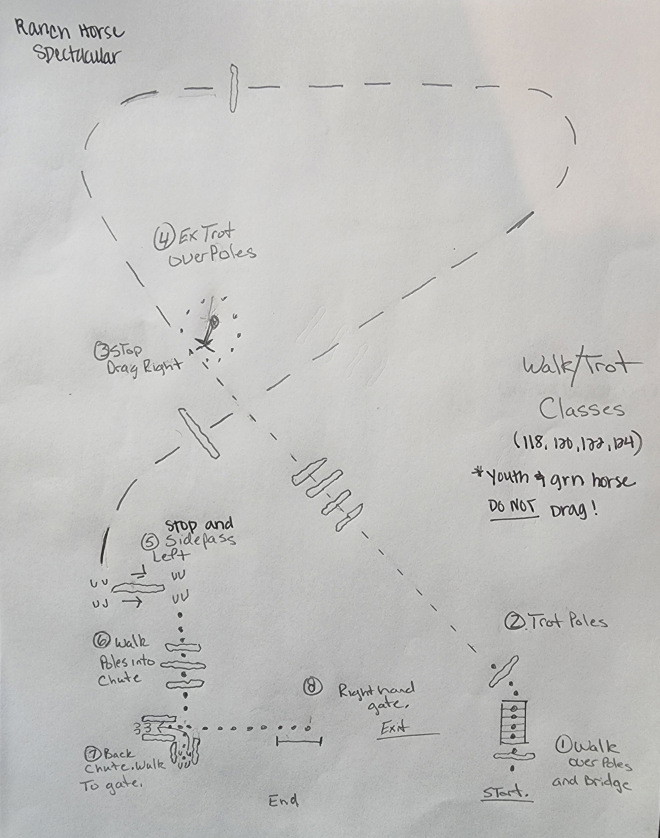 Ranch Horse
Spectacular
④ Ex Trot
over Poles
③ Stop
Drag Right
Walk/Trot
Classes
(118, 120, 122, 124)
*Youth & grn horse
DO NOT Drag!
⑤ Stop and
Sidepass
Left
② Trot Poles
⑥ Walk
Poles into
Chute
⑧ Right hand
gate.
Exit
⑦ Back
Chute. Walk
To gate.
① Walk
over Poles
and Bridge
Start.
End